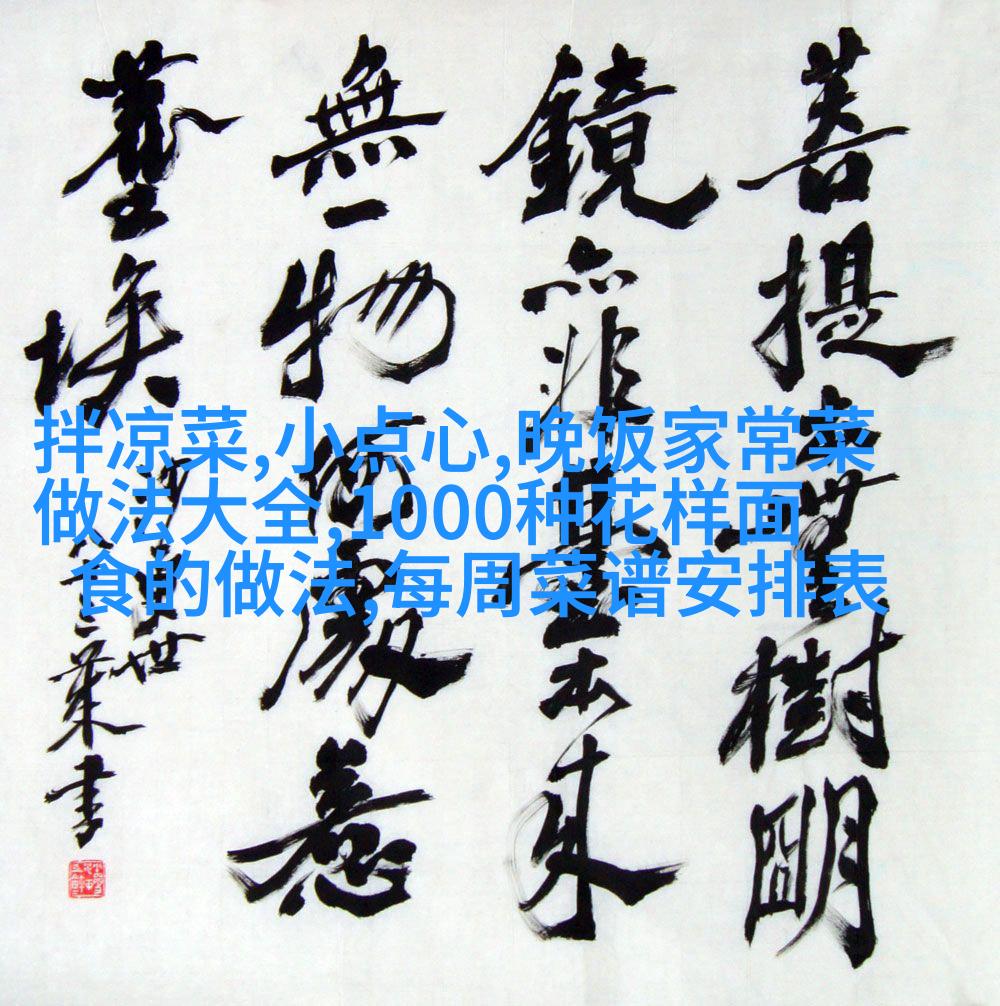 拌凉菜,小点心,晚饭家常菜
做法大全,1000种花样面
食的做法,每周菜谱安排表
菩提本無樹明
鏡亦非臺本来
無一物何處惹
塵埃